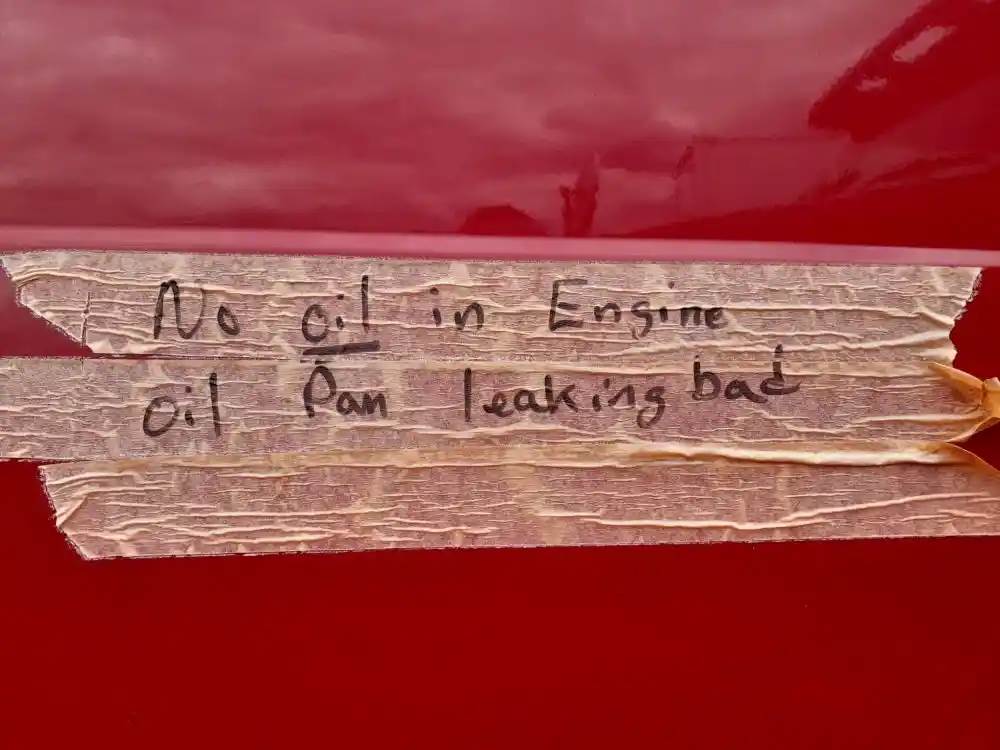 No oil in Engine
Oil Pan leaking bad